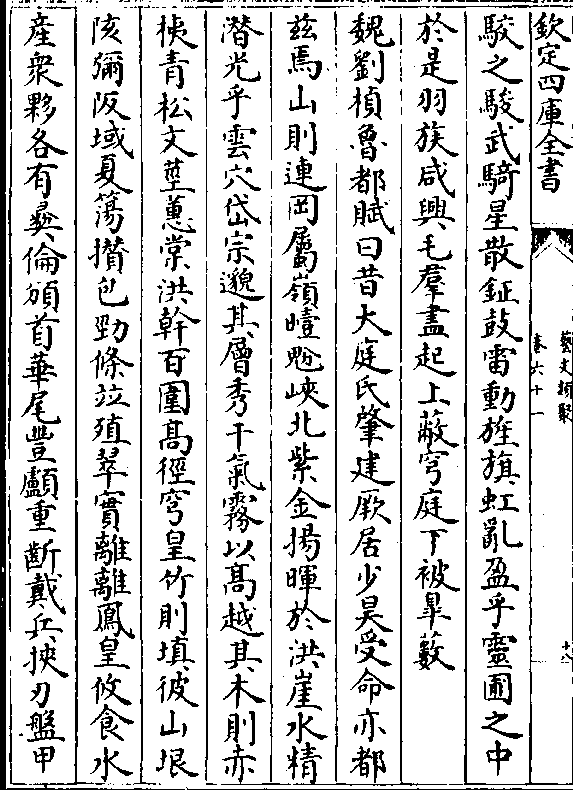 欽定四庫全書
藝文類聚
卷六十一
駮之駿武騎星散鉦鼓雷動旌旗虹亂盈乎靈囿之中
於是羽族咸興毛羣盡起上蔽穹庭下被臯藪
魏劉楨魯都賦曰昔大庭氏肇建厥居少昊受命亦都
兹焉山則連岡屬嶺暳魀峽北紫金揚暉於洪崖水精
潛光乎雲穴岱宗邈其層秀干氣霧以髙越其木則赤
桋青松文莖蕙棠洪幹百圍髙徑穹皇竹則填彼山垠
陔彌阪域夏簜攅包勁條竝殖翠實離離鳳皇攸食水
産衆夥各有彛倫頒首華尾豐顱重斷戴兵挾刃盤甲